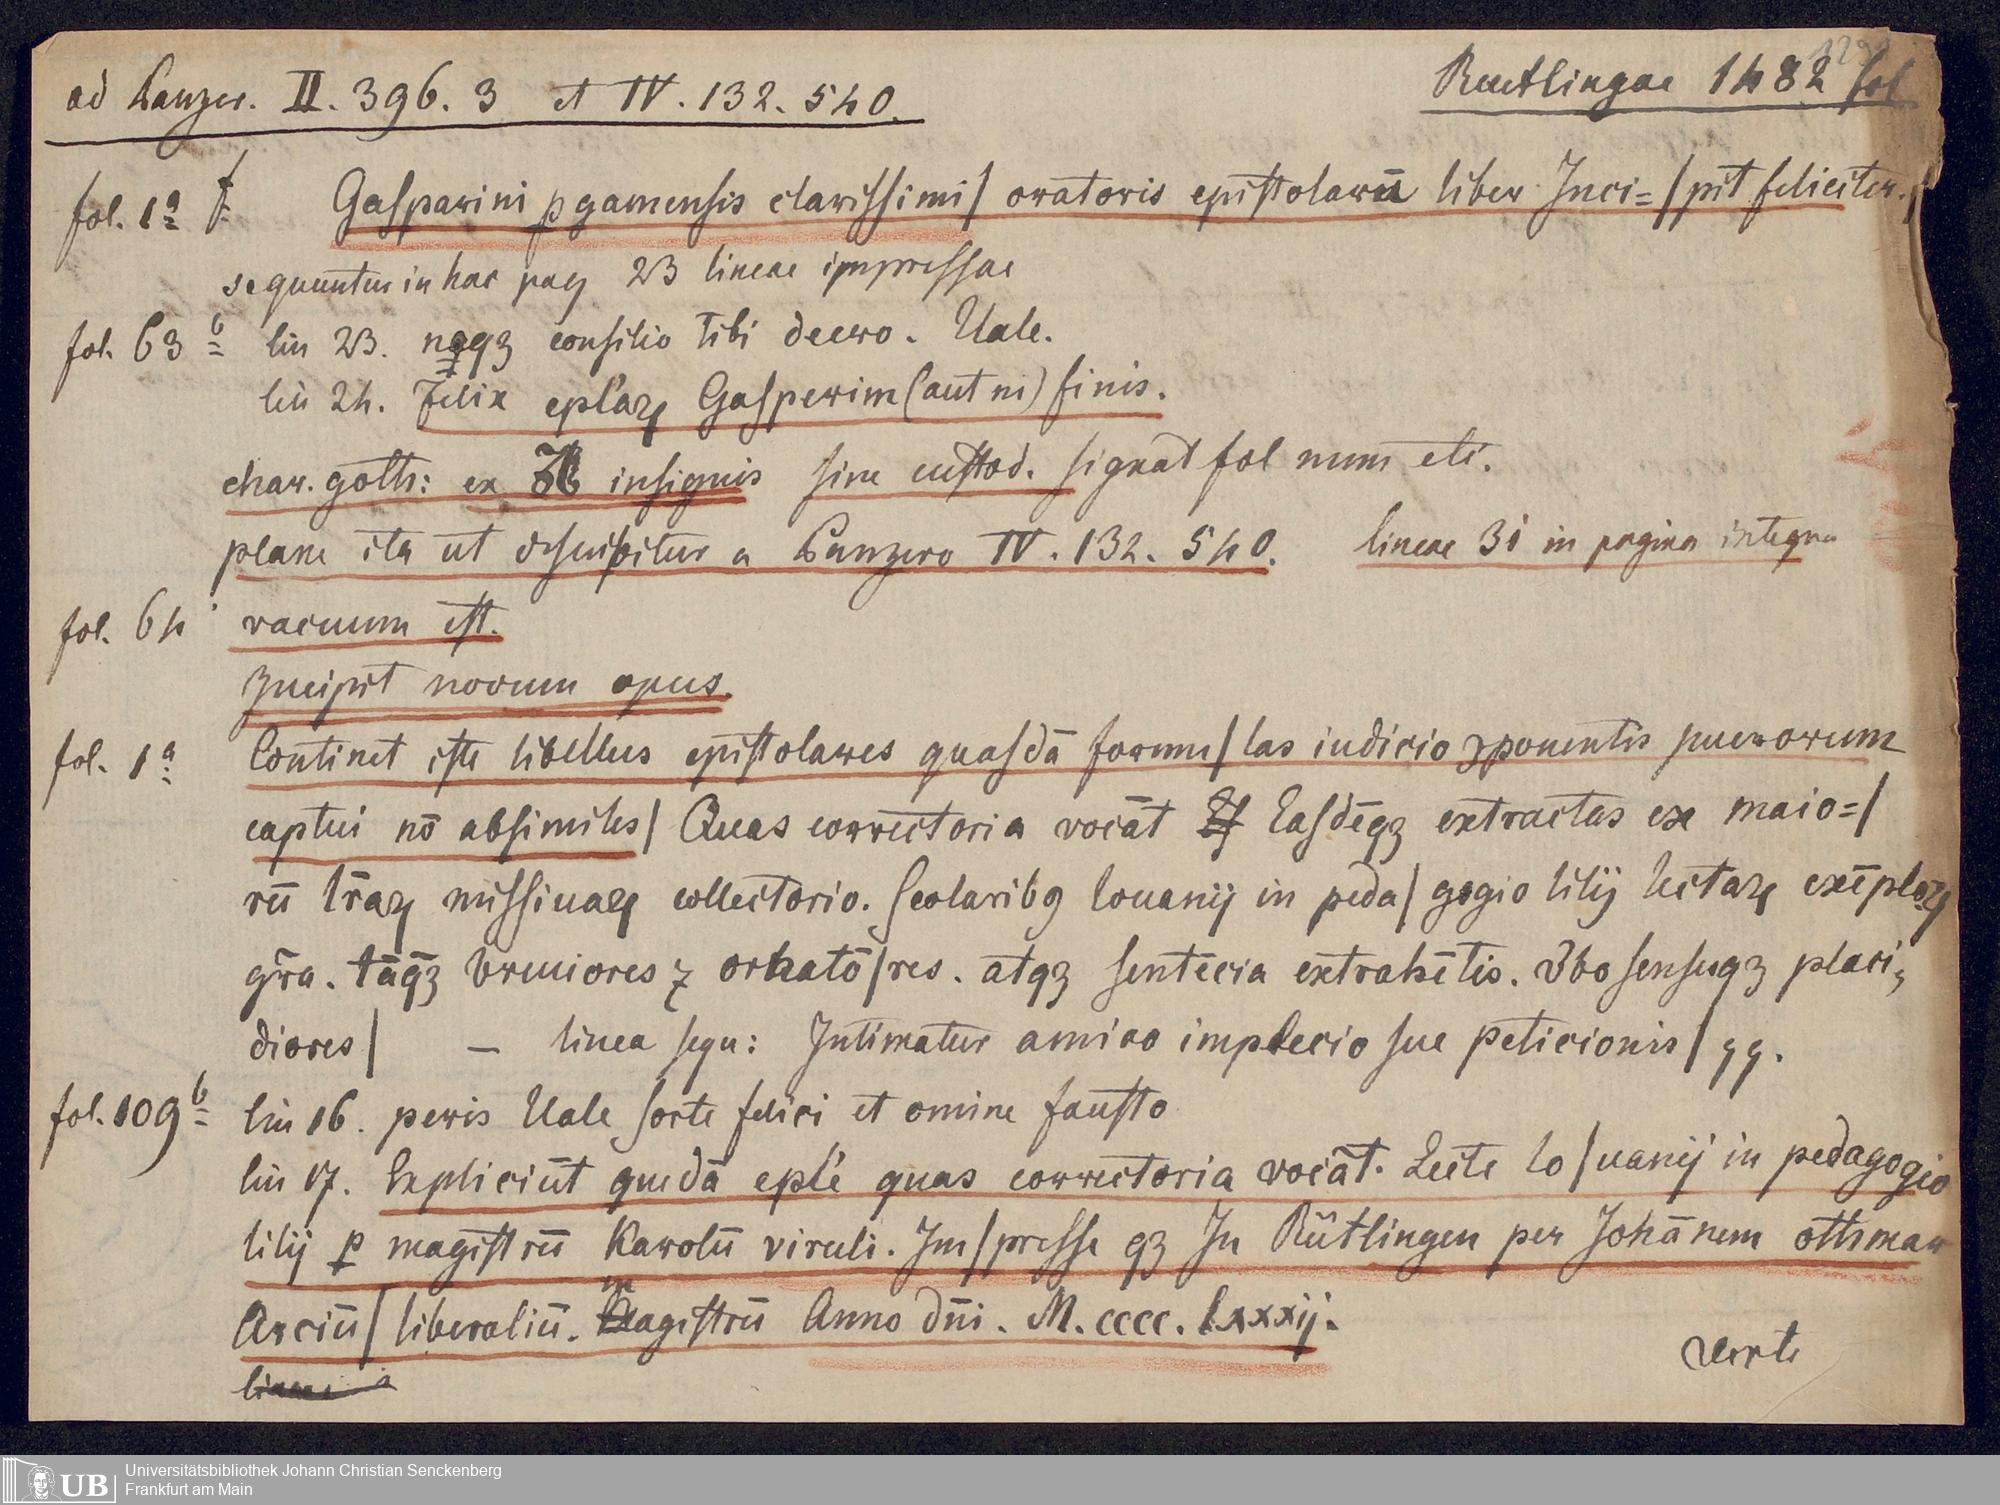 ad Panzer. II. 396. 3 et IV. 132. 540.
Reutlingae 1482 fol
fol. 1a Gasparini ꝑgamensis clarissimi/ oratoris epistolarū liber Inci=/pit feliciter./
sequuntur in hac pag 23 lineae impressae
fol. 63b lin 23. neqꝫ consilio tibi deero. Uale.
lin 24. Felix epl'aꝝ Gasperim (aut ni) finis.
char. goth: ex insignis sine custod. signat fol num etc.
plane ita ut describitur a Panzero IV. 132. 540. lineae 31 in pagina integra
fol. 64 vacuum est.
Incipit novum opus.
fol. 1a Continet iste libellus epistolares quasdā formu/las iudicio ꝯponentis puerorum
captui nō absimiles/ Quas correctoria vocāt Easdēqꝫ extractas ex maio=/
rū lr̄aꝝ missiuaꝝ collectorio. Scolaribꝯ louanij in peda/gogio lilij lectaꝝ exēplaꝝ
gr̄a. tāqꝫ breuiores ⁊ ornatō/res. atqꝫ sentēcia extrahētis. Vbo sensuqꝫ placi,
diores/ — linea sequ: Intimatur amico implecio sue peticionis/ qq.
fol. 109b lin 16. peris Uale sorte felici et omine fausto
lin 17. Expliciūt quedā epl'e quas correctoria vocāt. Lecte lo/uanij in pedagogio
lilij ꝑ magistrū Karolū viruli. Im/presse qꝫ In Rütlingen per Johānem ottmar
Arciū/ liberaliū. magistrū Anno dn̄i. M. cccc. lxxxij.
verte
Universitätsbibliothek Johann Christian Senckenberg
UB Frankfurt am Main